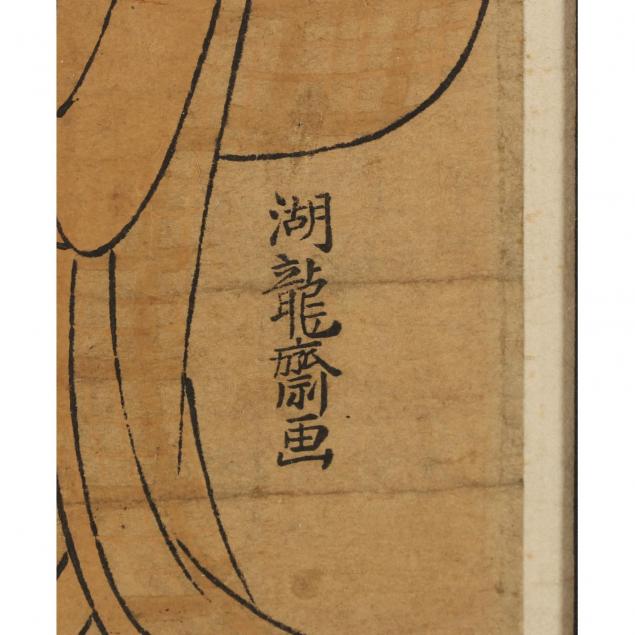 湖龍齋画